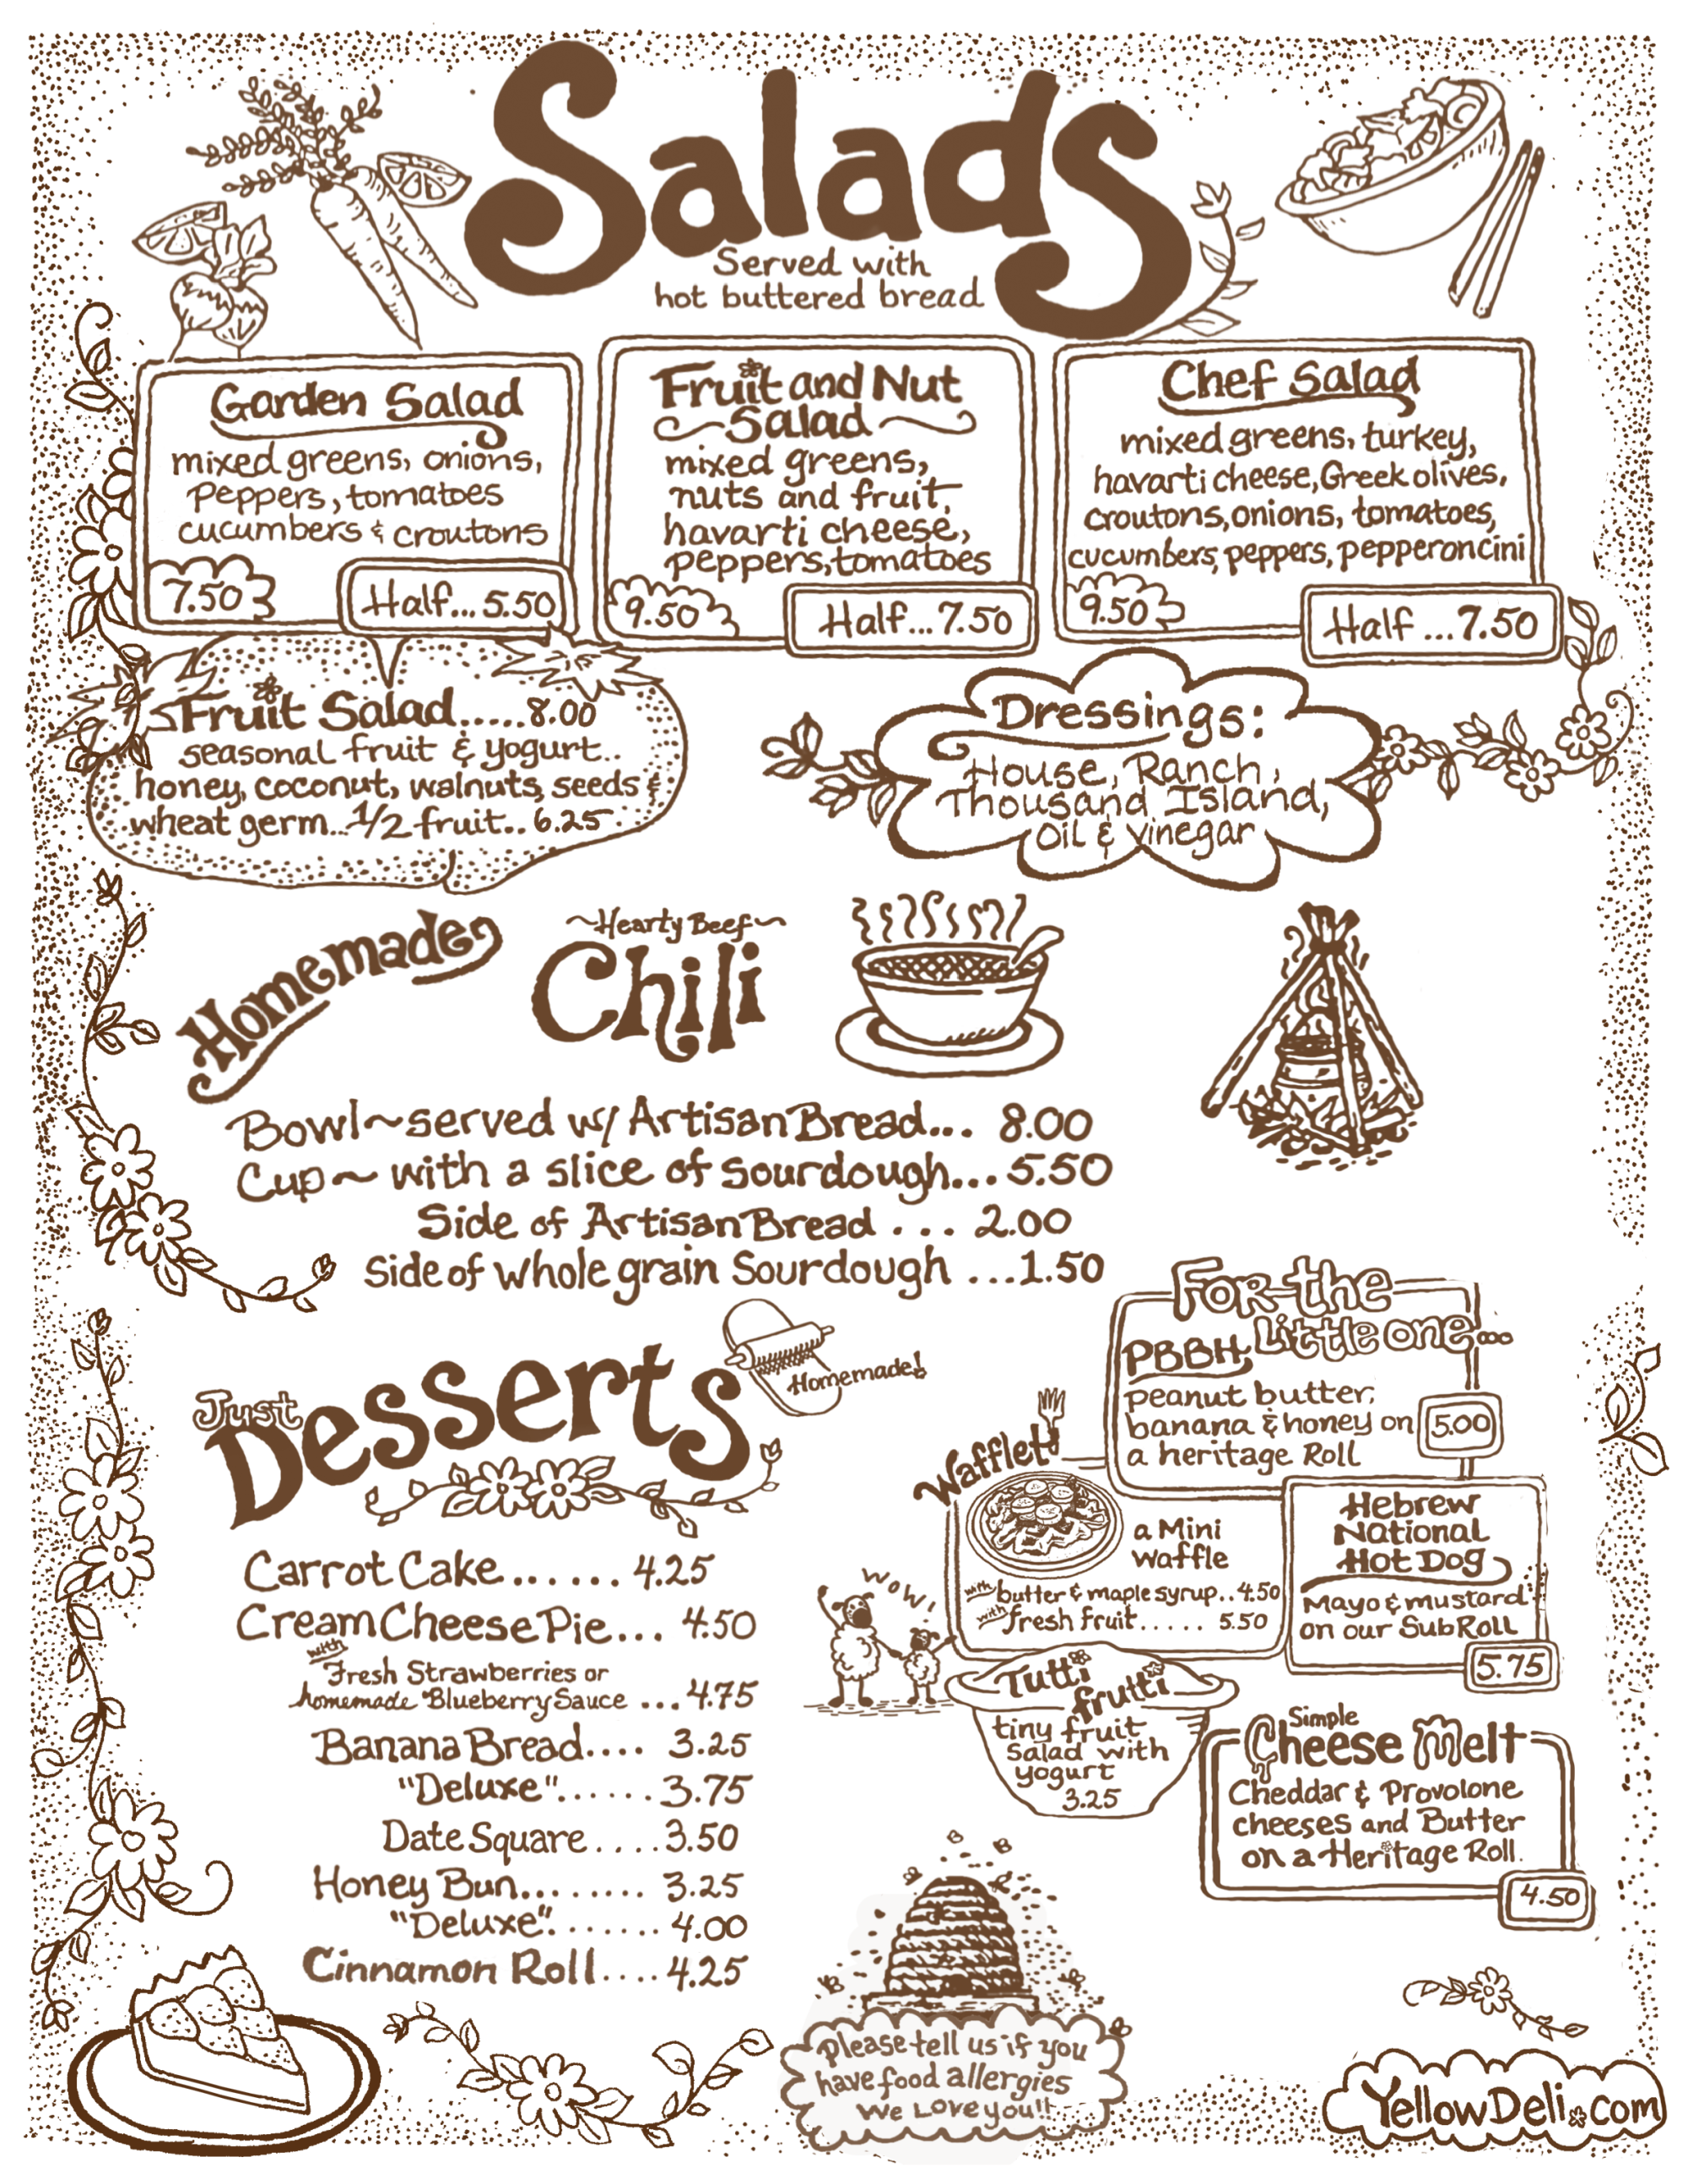 Salads
Served with
hot buttered bread
Garden Salad
mixed greens, onions,
Peppers, tomatoes
cucumbers & croutons
7.50
Half... 5.50
Fruit and Nut
Salad
mixed greens,
nuts and fruit,
havarti cheese,
peppers, tomatoes
9.50
Half... 7.50
Chef Salad
mixed greens, turkey,
havarti cheese, Greek olives,
croutons, onions, tomatoes,
cucumbers, peppers, pepperoncini
9.50
Half ...7.50
Fruit Salad......8.00
seasonal fruit & yogurt..
honey, coconut, walnuts, seeds &
wheat germ...1/2 fruit.. 6.25
Dressings:
House, Ranch,
Thousand Island,
Oil & Vinegar
Homemade
~Hearty Beef~
Chili
Bowl~served w/ Artisan Bread... 8.00
Cup~ with a slice of Sourdough... 5.50
Side of Artisan Bread . . . 2.00
Side of whole grain Sourdough ...1.50
Just
Desserts
Homemade!
Carrot Cake....... 4.25
Cream Cheese Pie... 4.50
with
Fresh Strawberries or
homemade Blueberry Sauce ...4.75
Banana Bread.... 3.25
"Deluxe"......3.75
Date Square....3.50
Honey Bun........ 3.25
"Deluxe"....... 4.00
Cinnamon Roll.... 4.25
For the
Little one...
PBBH,
peanut butter,
banana & honey on
a heritage Roll
5.00
Wafflet
a Mini
Waffle
with butter & maple syrup.. 4.50
with fresh fruit..... 5.50
Hebrew
National
Hot Dog
Mayo & mustard
on our Sub Roll
5.75
WOW!
Tutti
frutti
tiny fruit
Salad with
yogurt
3.25
Simple
Cheese Melt
Cheddar & Provolone
cheeses and Butter
on a Heritage Roll.
4.50
Please tell us if you
have food allergies
We Love you!!
YellowDeli.com